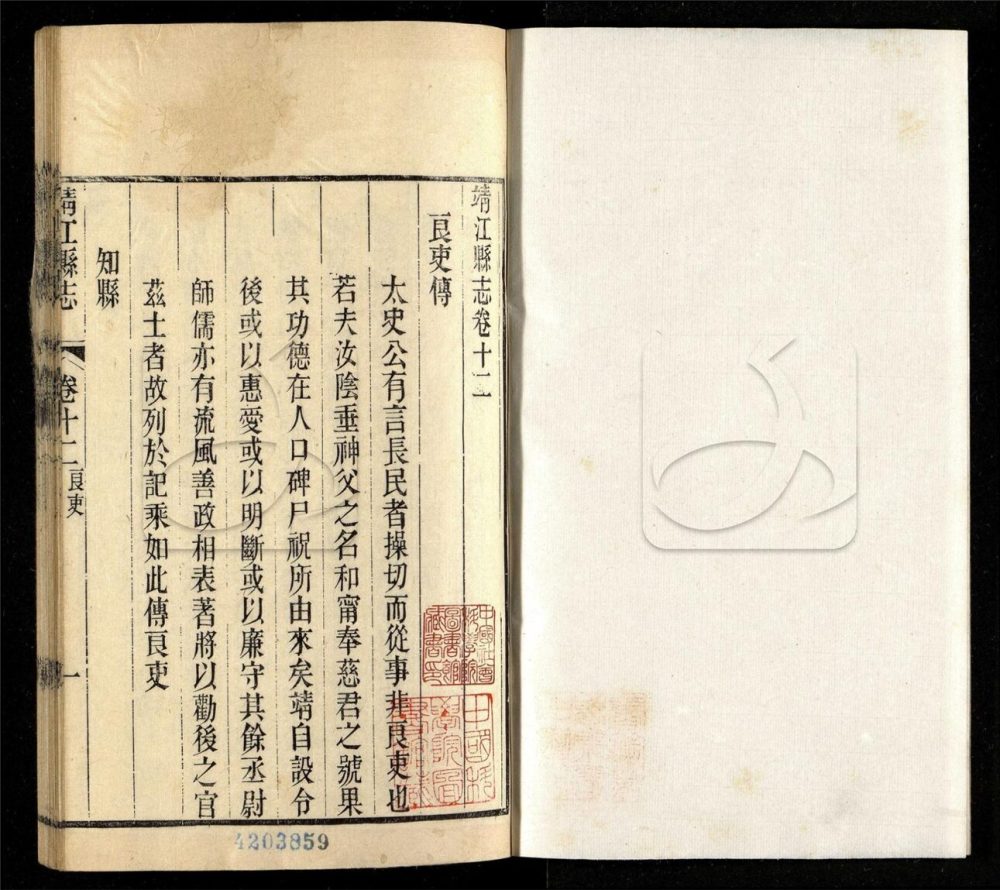 靖江縣志卷十二
良吏傳
太史公有言長民者操切而從事非良吏也
若夫汝陰垂神父之名和甯奉慈君之號果
其功德在人口碑尸祝所由來矣靖自設令
後或以惠愛或以明斷或以廉守其餘丞尉
師儒亦有流風善政相表著將以勸後之官
茲土者故列於記乘如此傳良吏
知縣
靖江縣志
卷十二
良吏
一
中國社會
科學院
圖書館
藏書印
中國科
學院圖
書館藏
4203859